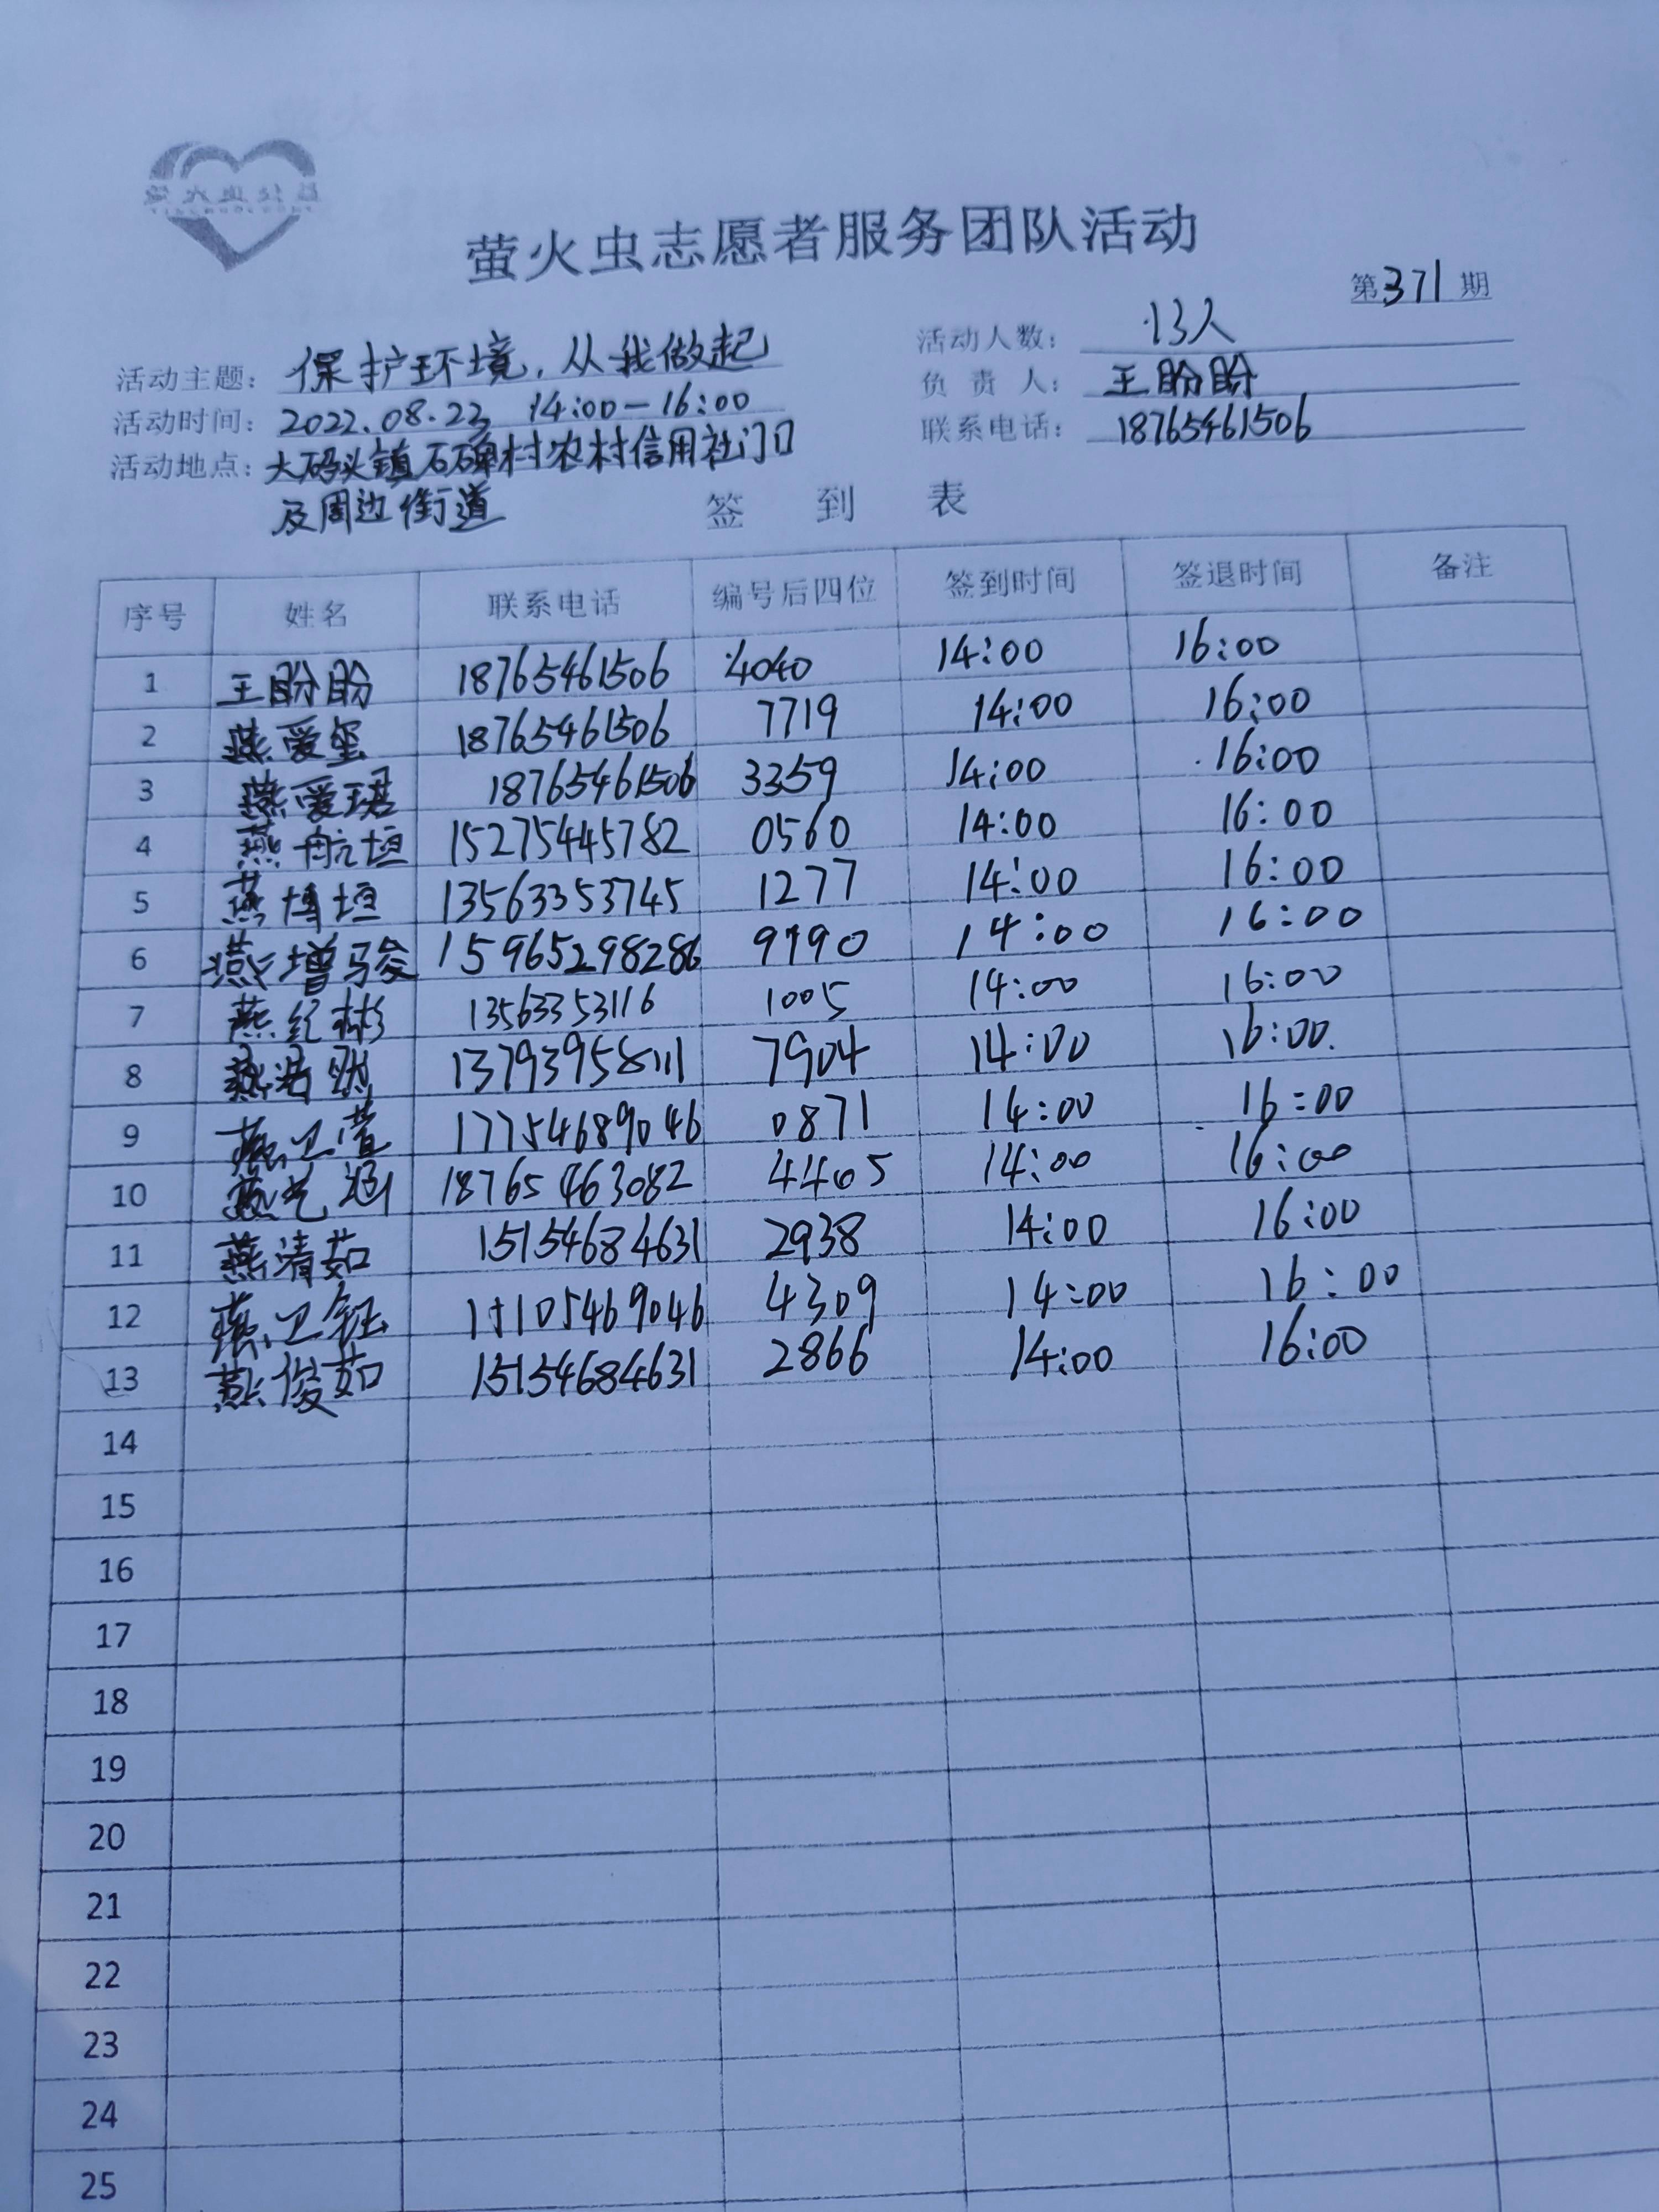 萤火虫公益
萤火虫志愿者服务团队活动
第371期
活动主题：保护环境，从我做起 活动人数：13人
活动时间：2022.08.23 14:00-16:00 负责人：王盼盼
活动地点：大码头镇石碑村农村信用社门口 联系电话：18765461506
及周边街道
签到表
序号 姓名 联系电话 编号后四位 签到时间 签退时间 备注
1 王盼盼 18765461506 4040 14:00 16:00
2 燕爱玺 18765461506 7719 14:00 16:00
3 燕爱珺 18765461506 3359 14:00 16:00
4 燕航垣 15275445782 0560 14:00 16:00
5 燕博垣 13563353745 1277 14:00 16:00
6 燕增骏 15965298286 9790 14:00 16:00
7 燕纪彬 13563353116 1005 14:00 16:00
8 燕 13793958111 7904 14:00 16:00
9 燕卫萱 17754689046 0871 14:00 16:00
10 燕艺涵 18765463082 4405 14:00 16:00
11 燕清茹 15154684631 2938 14:00 16:00
12 燕卫钰 15105469046 4309 14:00 16:00
13 燕俊茹 15154684631 2866 14:00 16:00
14
15
16
17
18
19
20
21
22
23
24
25